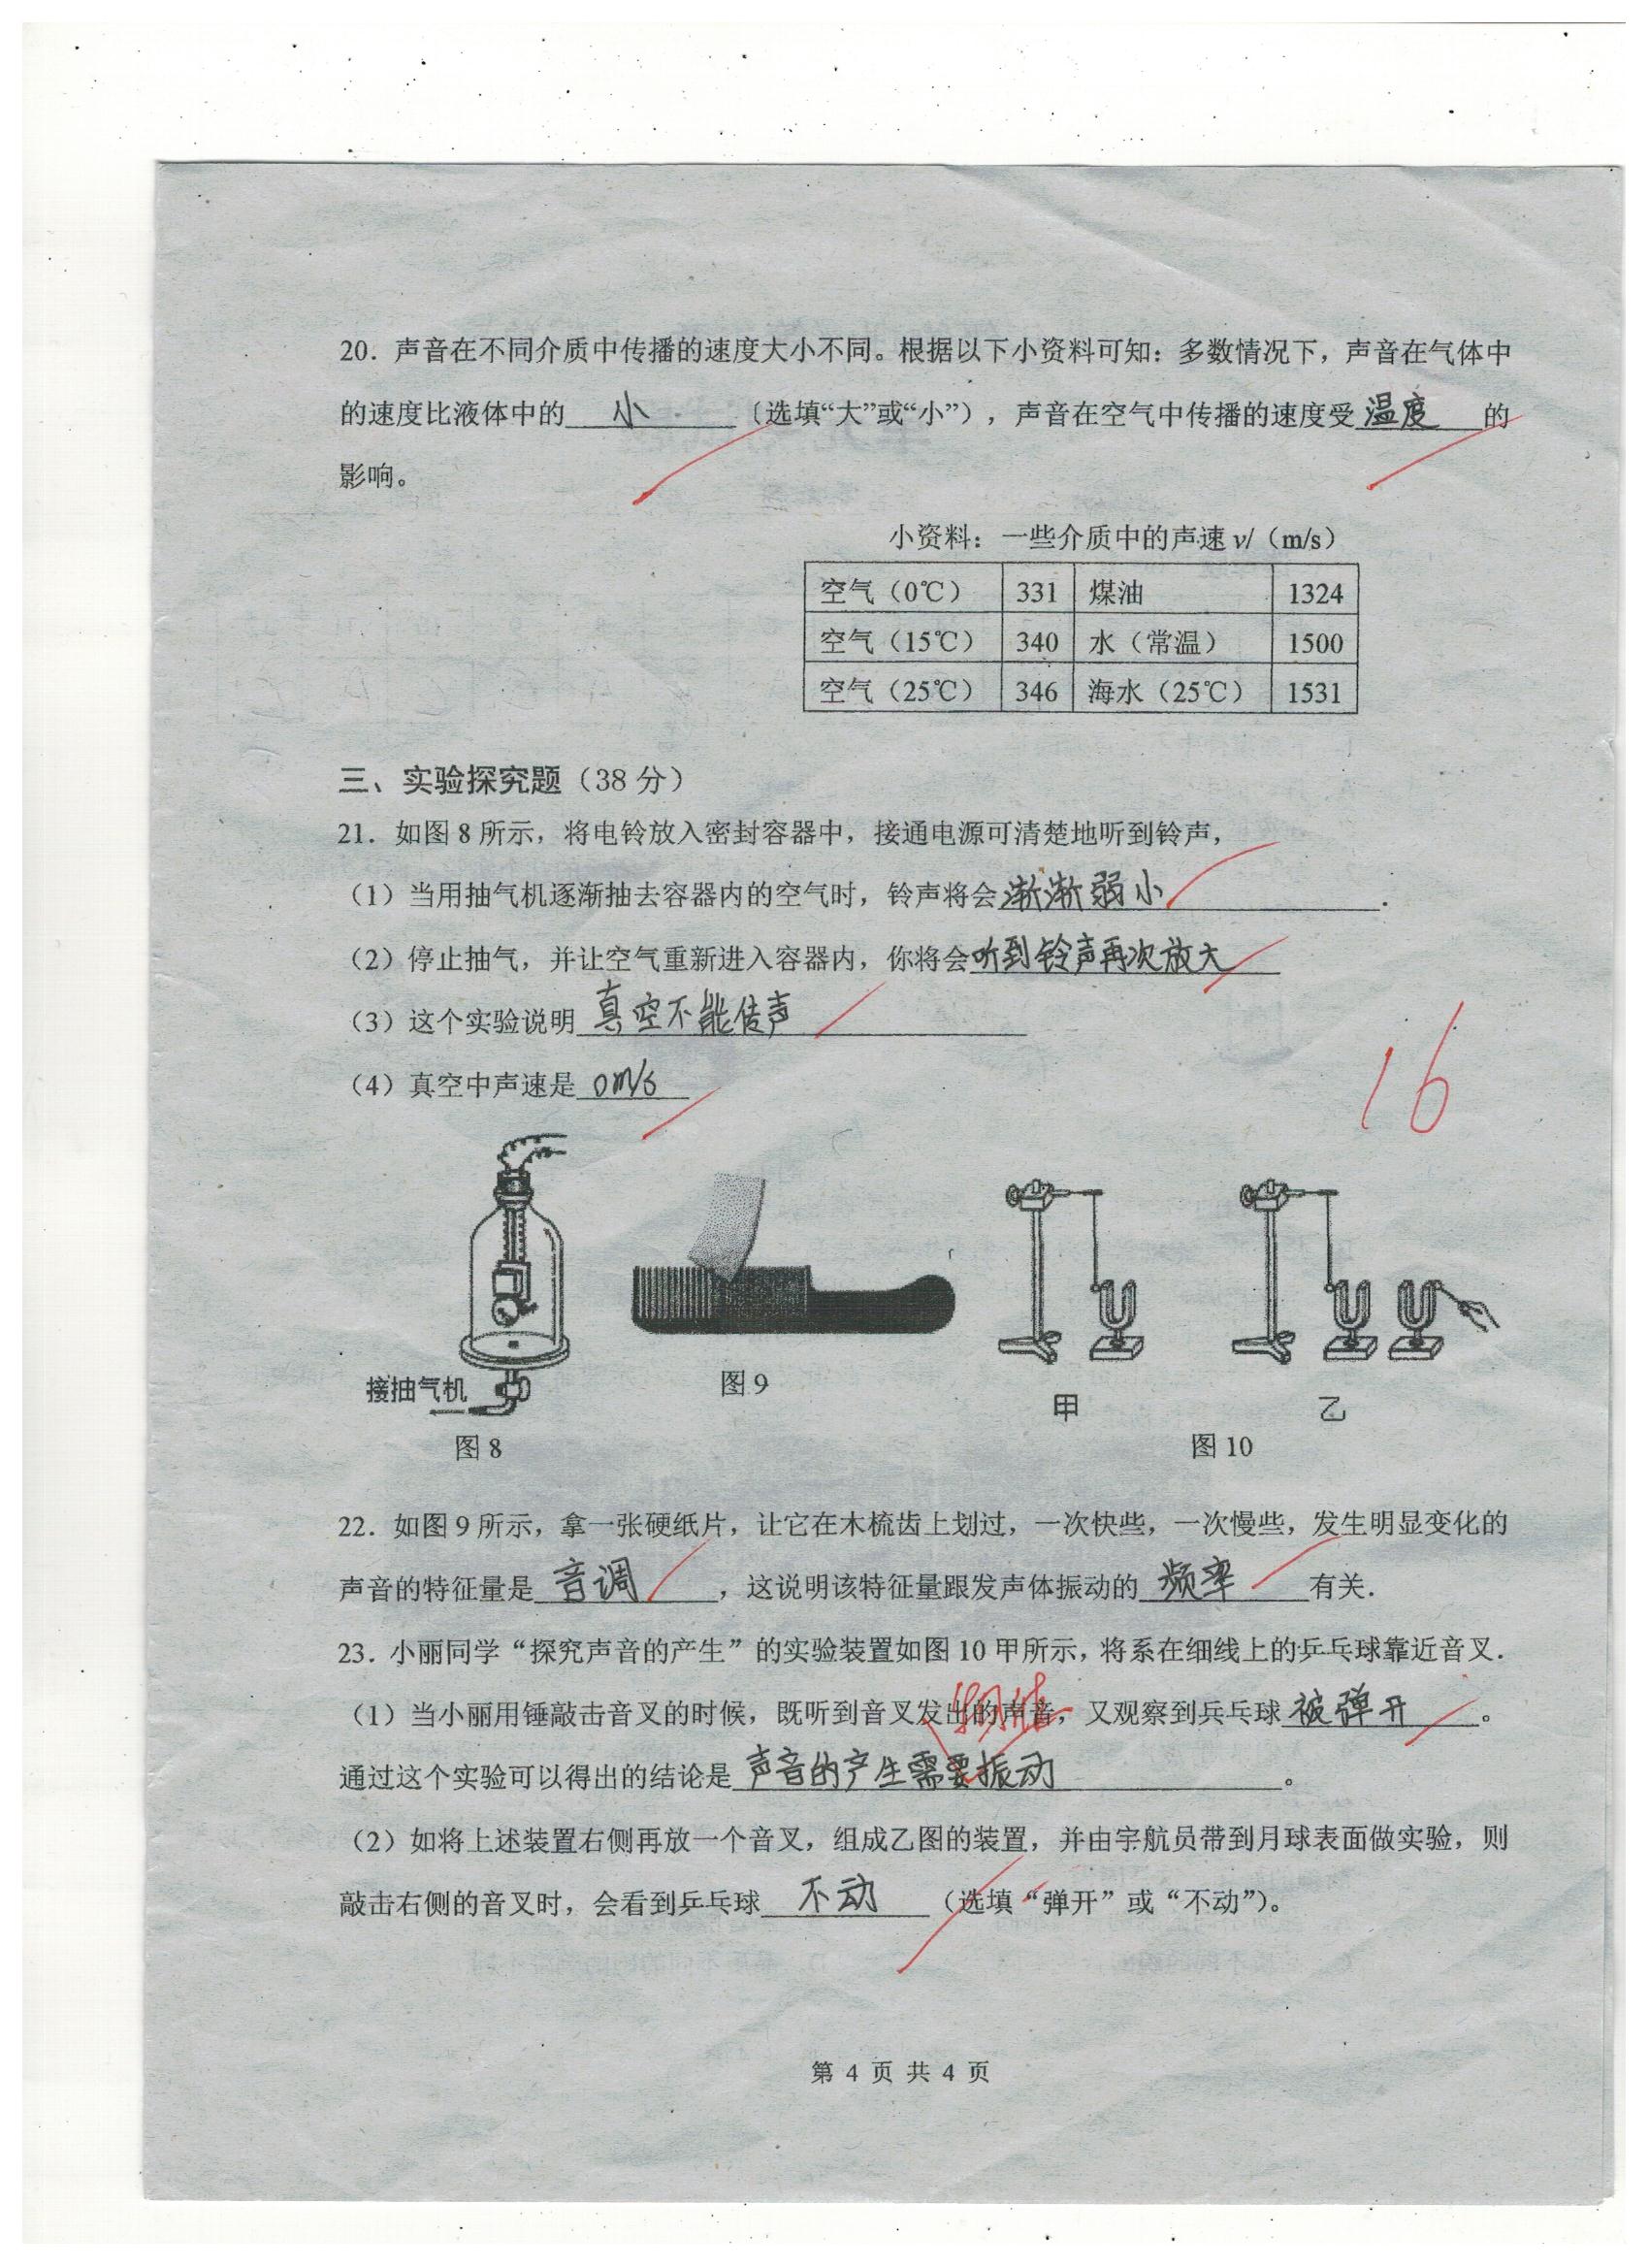 20. 声音在不同介质中传播的速度大小不同。根据以下小资料可知：多数情况下，声音在气体中
的速度比液体中的 小 （选填“大”或“小”），声音在空气中传播的速度受 温度 的
影响。
小资料：一些介质中的声速 v/（m/s）
空气（0℃） 331 煤油 1324
空气（15℃） 340 水（常温） 1500
空气（25℃） 346 海水（25℃） 1531
三、实验探究题（38 分）
21. 如图 8 所示，将电铃放入密封容器中，接通电源可清楚地听到铃声，
（1）当用抽气机逐渐抽去容器内的空气时，铃声将会 渐渐弱小 .
（2）停止抽气，并让空气重新进入容器内，你将会 听到铃声再次放大
（3）这个实验说明 真空不能传声
16
（4）真空中声速是 0m/s
接抽气机
图 8
图 9
甲
乙
图 10
22. 如图 9 所示，拿一张硬纸片，让它在木梳齿上划过，一次快些，一次慢些，发生明显变化的
声音的特征量是 音调 ，这说明该特征量跟发声体振动的 频率 有关.
23. 小丽同学“探究声音的产生”的实验装置如图 10 甲所示，将系在细线上的乒乓球靠近音叉.
（1）当小丽用锤敲击音叉的时候，既听到音叉发出的声音，又观察到兵乓球 被弹开 。
物体
通过这个实验可以得出的结论是 声音的产生需要振动 。
（2）如将上述装置右侧再放一个音叉，组成乙图的装置，并由宇航员带到月球表面做实验，则
敲击右侧的音叉时，会看到乒乓球 不动 （选填“弹开”或“不动”）。
第 4 页 共 4 页